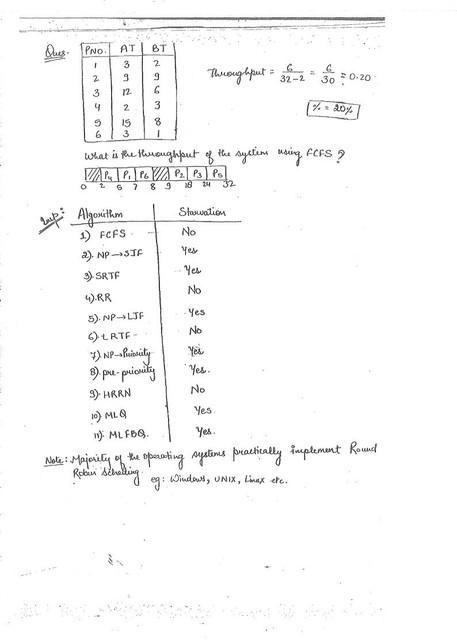 Ques.
PNO. AT BT
1 3 2
2 9 9
3 12 6
4 2 3
5 15 8
6 3 1
Throughput = 6/32-2 = 6/30 = 0.20
% = 20%
What is the throughput of the system using FCFS ?
P4 P1 P6 P2 P3 P5
0 2 5 7 8 9 18 24 32
Imp:
Algorithm Starvation
1) FCFS No
2). NP→SJF Yes
3) SRTF Yes
4). RR No
5). NP→LJF Yes
6). LRTF No
7). NP→Priority Yes
8). pre-priority Yes.
9). HRRN No
10) MLQ Yes
11). MLFBQ. Yes.
Note: Majority of the operating systems practically implement Round
Robin scheduling eg: Windows, UNIX, Linux etc.